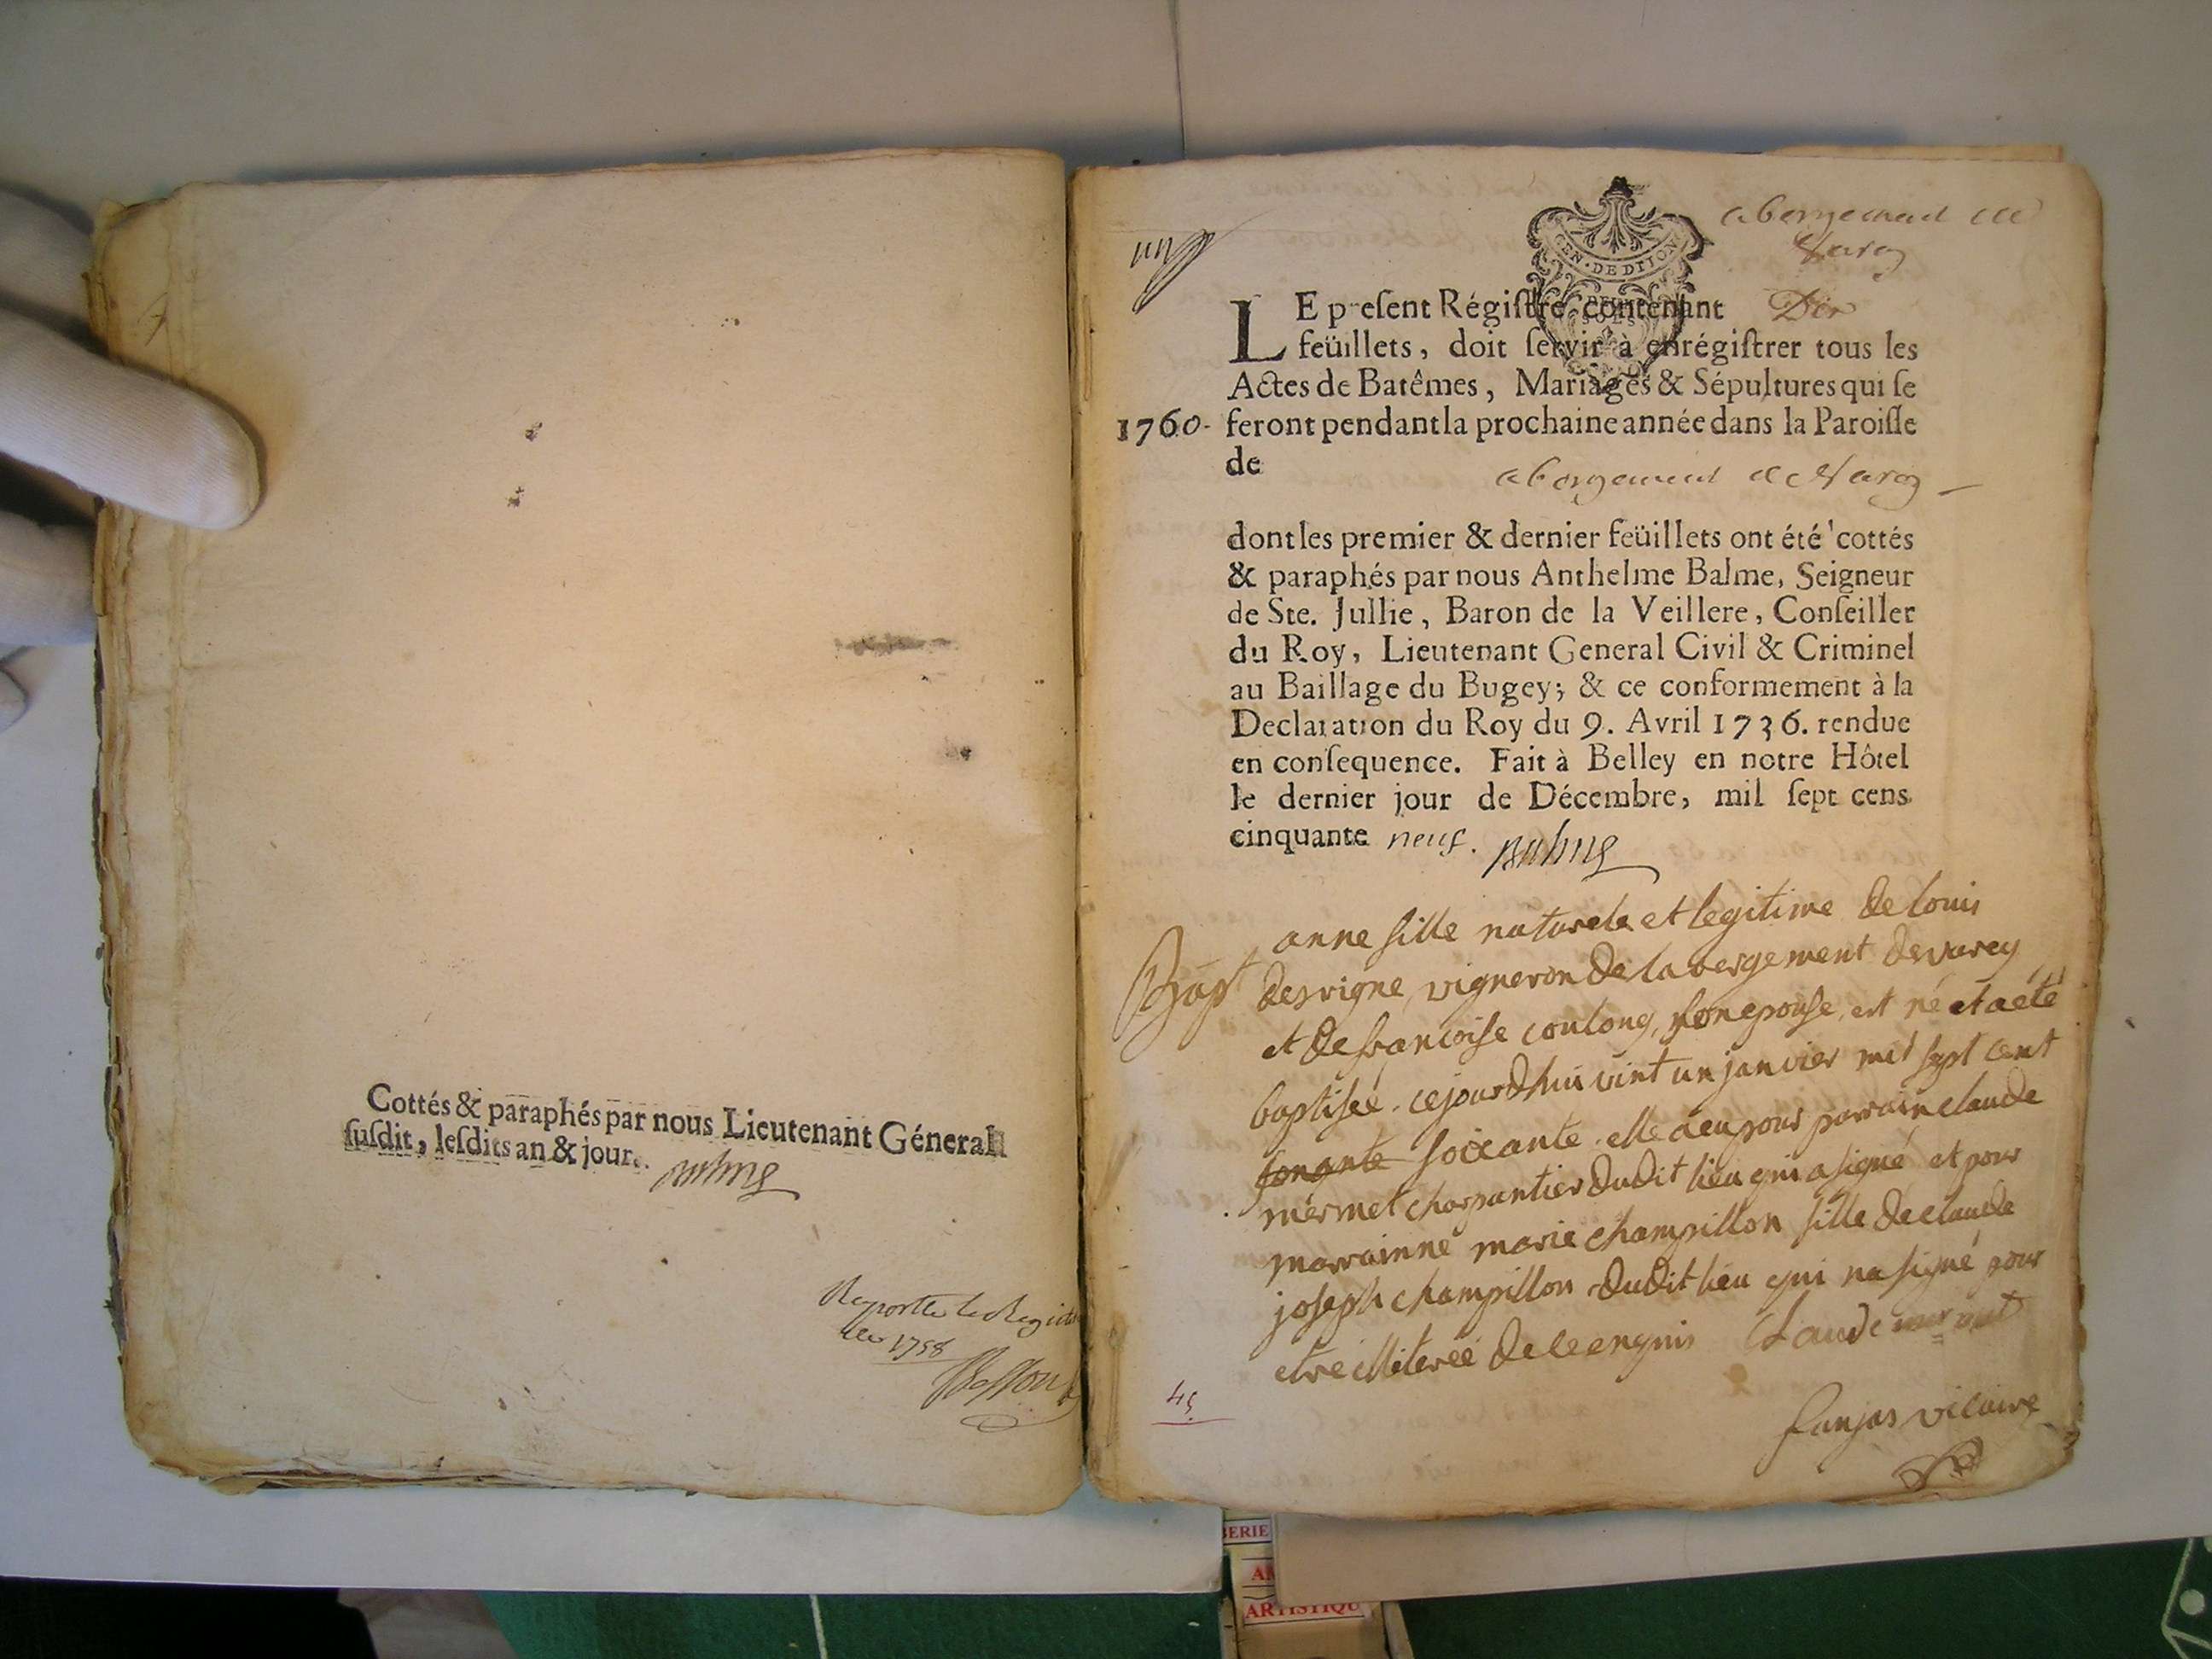 Cottés & paraphés par nous Lieutenant Géneral
ſuſdit, leſdits an & jour.
Balme
Raporté le Regitre
de 1758
un
GEN. DE DIJON
abergement de
Varey
LE preſent Régiſtre contenant Dix
feüillets, doit ſervir à enrégiſtrer tous les
Actes de Batêmes, Mariages & Sépultures qui ſe
1760. feront pendant la prochaine année dans la Paroiſſe
de abergement de Varey
dont les premier & dernier feüillets ont été cottés
& paraphés par nous Anthelme Balme, Seigneur
de Ste. Jullie, Baron de la Veillere, Conſeiller
du Roy, Lieutenant General Civil & Criminel
au Baillage du Bugey; & ce conformement à la
Declaration du Roy du 9. Avril 1736. rendue
en conſequence. Fait à Belley en notre Hôtel
le dernier jour de Décembre, mil ſept cens
cinquante neuf. Balme
anne fille naturele et legitime de louis
Bapt desvigne vigneron de labergement de varey
et de francoise coulong, son epouse, est né et a été
baptiseé. cejourdhui vint un janvier mil sept cent
soixante. elle a eu pour parrain claude
mermet charpantier dudit lieu qui a signé et pour
marrainne marie champillon fille de claude
joseph champillon dudit lieu qui na signé pour
etre illitereé de ce enquis Claude mermet
45
fanjas vicaire
BERIE
ARTISTIQU